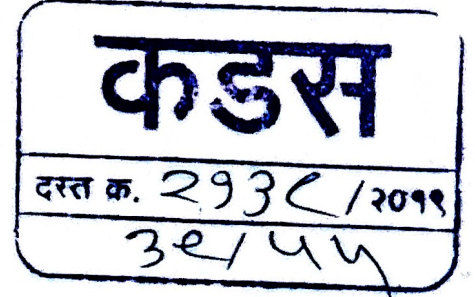 कडस
दस्त क. २१३८/२०१९
३९/५५